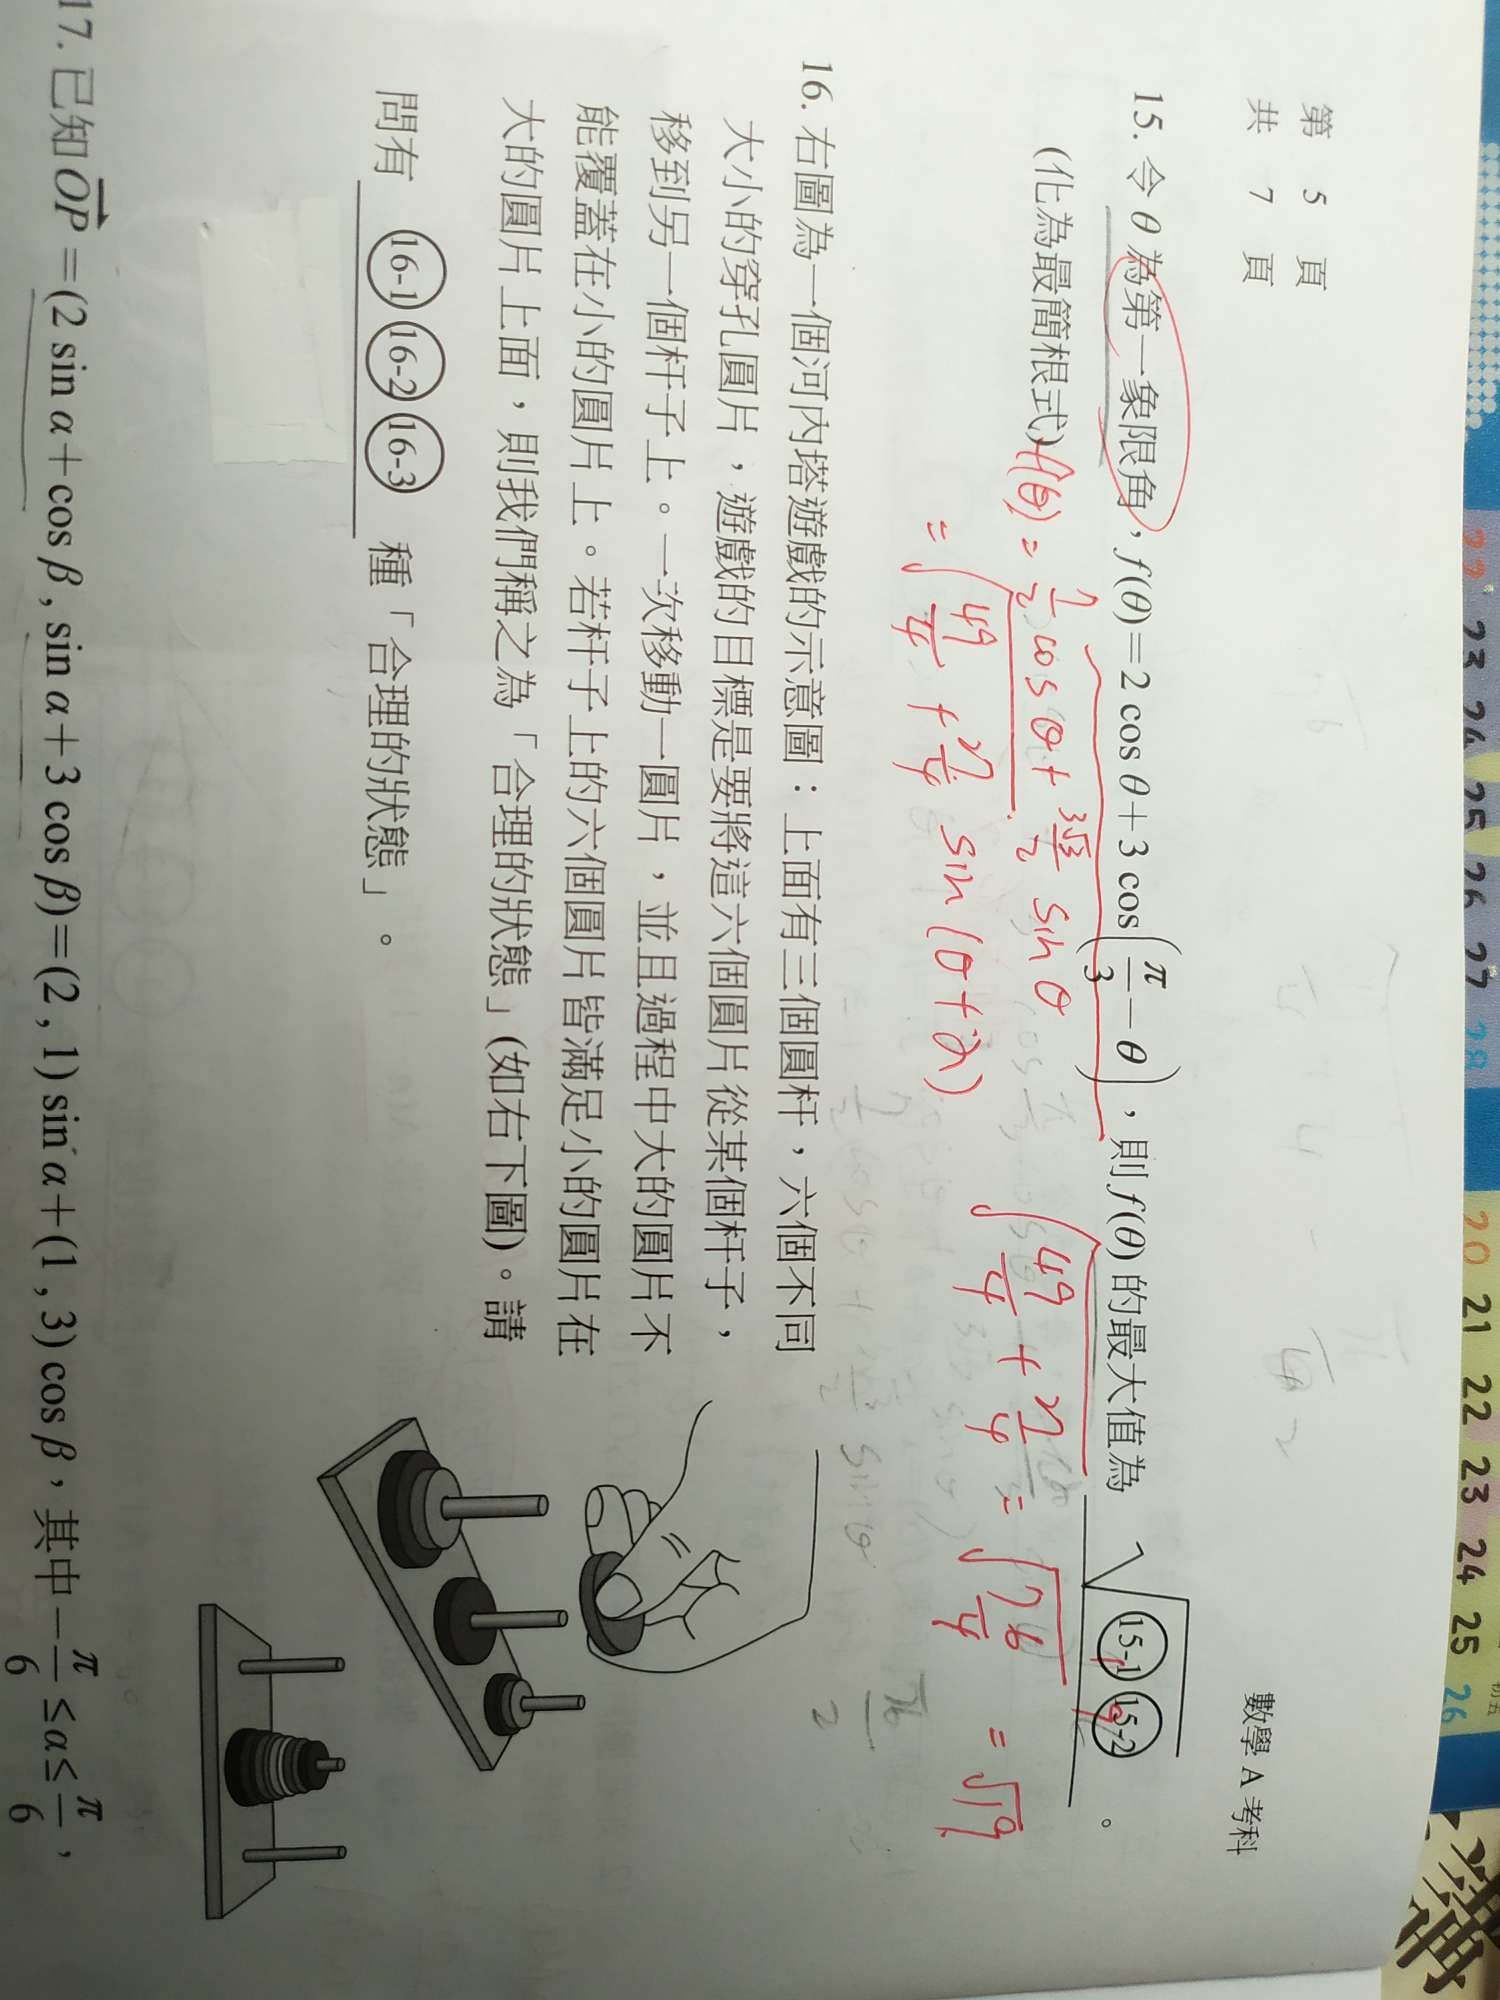 第 5 頁
共 7 頁
數學 A 考科
15. 令 θ 為第一象限角，f(θ)=2cosθ+3cos(π/3−θ)，則 f(θ) 的最大值為 √(15-1)(15-2)。
19
(化為最簡根式) f(θ) = 7/2 cosθ + 3√3/2 sinθ
= √(49/4 + 27/4) sin(θ+α)
√(49/4 + 27/4) = √(76/4) = √19
16. 右圖為一個河內塔遊戲的示意圖：上面有三個圓杆，六個不同
大小的穿孔圓片，遊戲的目標是要將這六個圓片從某個杆子，
移到另一個杆子上。一次移動一圓片，並且過程中大的圓片不
能覆蓋在小的圓片上。若杆子上的六個圓片皆滿足小的圓片在
大的圓片上面，則我們稱之為「合理的狀態」(如右下圖)。請
問有 (16-1)(16-2)(16-3) 種「合理的狀態」。
17. 已知 OP→=(2sinα+cosβ, sinα+3cosβ)=(2,1)sinα+(1,3)cosβ，其中 −π/6≤α≤π/6，
23 24 25 26 27 28
20 21 22 23 24 25 26